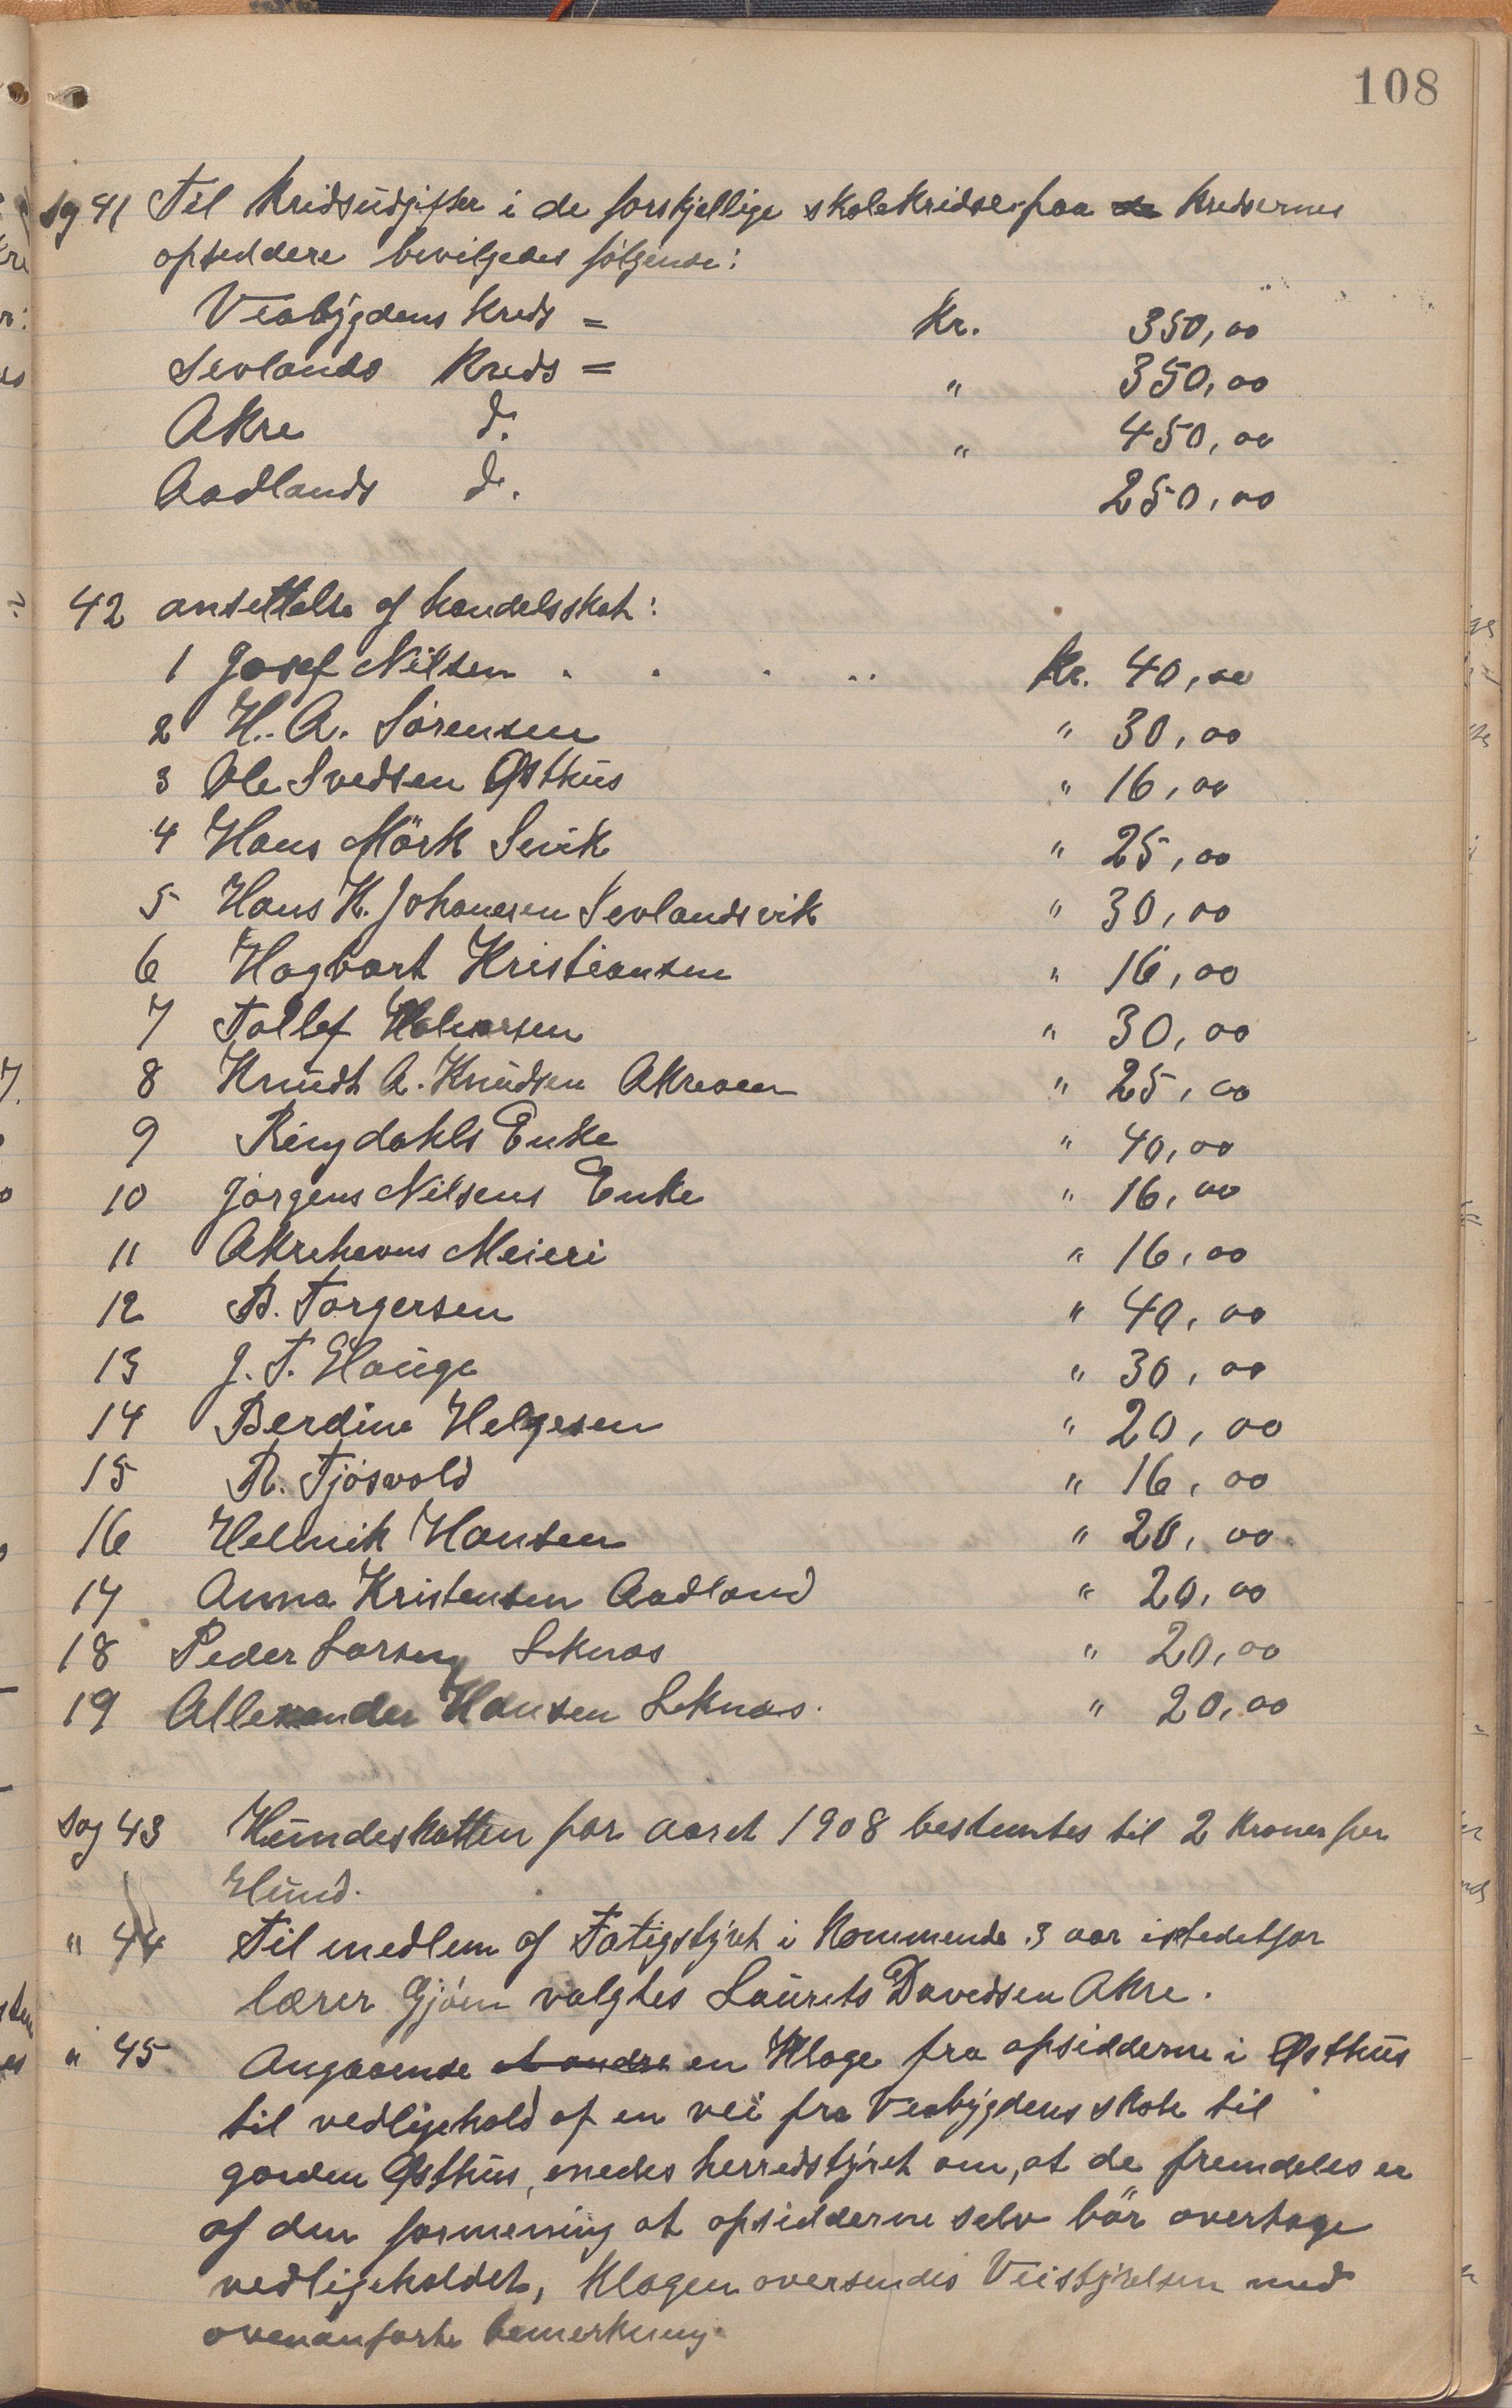 108
Sg 41 Til Kridsudgifter i de forskjellige skolekridse paa de Kredsernes
opsiddere bevilgedes følgende:
Veabygdens Kreds = Kr. 350,00
Sevlands Kreds = " 350,00
Akre d. " 450,00
Aadlands d. 250,00
42 ansettelse af handelsskat:
1 Josef Nilsen . . . . . Kr. 40,00
2 H. A. Sørensen " 30,00
3 Ole Svedsen Østhus " 16,00
4 Hans Mörk Sevik " 25,00
5 Hans K. Johanesen Sevlandsvik " 30,00
6 Hagbart Kristiansen " 16,00
7 Tollef Halvorsen " 30,00
8 Knudt A. Knudsen Akresen " 25,00
9 Ringdahls Enke " 40,00
10 Jørgens Nilsens Enke " 16,00
11 Akrehavns Meieri " 16,00
12 B. Torgersen " 40,00
13 J. T. Hauge " 30,00
14 Berdine Helgesen " 20,00
15 R. Tjøsvold " 16,00
16 Helmik Hansen " 20,00
17 Anna Kristensen Aadland " 20,00
18 Peder Larseng Liknas " 20,00
19 Allexander Hansen Liknas. " 20,00
Sag 43 Hundeskatten for aaret 1908 bestemtes til 2 Kroner per
Hund.
" 44 Til medlem af Fatigstyret i Kommende 3 aar istedetfor
lærer Gjøen valgtes Laurits Davidsen Akre.
" 45 Angaaende at andre en Klage fra opsidderne i Østhus
til vedligehold af en vei fra Veabygdens skole til
gaarden Østhus, enedes herredstyret om, at de fremdeles er
af den formening at opsidderne selv bör overtage
vedligeholdet, Klagen oversendes Veistyrelsen med
ovenanførte bemerkning.